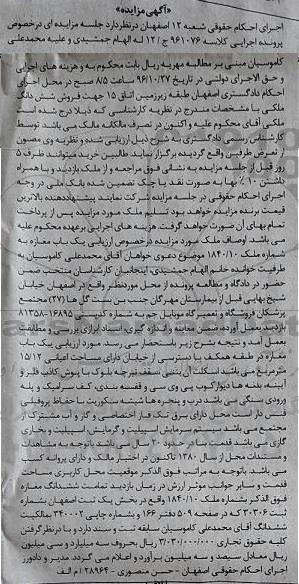 «آگهی مزایده»
اجرای احکام حقوقی شعبه ۱۲ اصفهان درنظر دارد جلسه مزایده ای درخصوص
پرونده اجرایی کلاسه ۹۶۱۰۷۶ ج / ۱۲ له الهام جمشیدی و علیه محمدعلی
کاموسیان مبنی بر مطالبه مهریه ریال بابت محکوم به و هزینه های اجرایی
و حق الاجرای دولتی در تاریخ ۹۶/۱۰/۲۷ ساعت ۸/۵ صبح در محل اجرای
احکام دادگستری اصفهان طبقه زیرزمین اتاق ۱۵ جهت فروش شش دانگ
ملکی با مشخصات مندرج در نظریه کارشناسی که ذیلا درج شده است
ملکی آقای محکوم علیه و اکنون در تصرف مالکانه مالک می باشد توسط
کارشناس رسمی دادگستری به شرح ذیل ارزیابی شده و نظریه وی مصون
از تعرض طرفین واقع گردیده برگزار نماید. طالبین خرید میتوانند ظرف ۵
روز قبل از جلسه مزایده به نشانی فوق مراجعه و از ملک بازدید و با همراه
داشتن ۱۰٪ بها به صورت نقد یا چک تضمین شده بانک ملی در وجه
اجرای احکام حقوقی در جلسه مزایده شرکت نمایند پیشنهاددهنده بالاترین
قیمت برنده مزایده خواهد بود تسلیم ملک مورد مزایده پس از پرداخت
تمام بهای آن صورت خواهد گرفت. هزینه های اجرایی برعهده محکوم علیه
می باشد. اوصاف ملک مورد مزایده درخصوص ارزیابی یک باب مغازه به
شماره ملک ۱۸۴۰/۱۰ موضوع دعوی خواهان آقای محمدعلی کاموسیان به
طرفیت خوانده خانم الهام جمشیدی، اینجانبان کارشناسان منتخب ضمن
حضور در دادگاه و مطالعه پرونده از محل موردنظر واقع در اصفهان خیابان
شیخ بهایی قبل از بیمارستان مهرگان جنب بن بست گل ها (۲۷) مجتمع
پزشکان فروشگاه و تعمیرگاه موبایل جم به شماره کدپستی ۱۶۸۹۵-۸۱۳۵۸
بازدید بعمل آورده، ضمن معاینه و اندازه گیری، اسناد ابرازی بررسی و مطابقت
بعمل آمد و نتیجه بشرح زیر باستحضار می رسد. مورد ارزیابی یک باب
مغازه در طبقه همکف با دسترسی از خیابان دارای مساحت اعیانی ۱۵/۱۲
مترمربع می باشد اسکلت آن بتنی سقف تیرچه بلوک با پوش کاذب فلز و
آینه، بدنه ها دیوارکوب پی وی سی و قفسه بندی، کف سرامیک و پله
ورودی سنگی می باشد درب و پنجره ها شیشه سکوریت با حفاظ پروفیلی
فنس دار است محل دارای برق تک فاز اختصاصی و گاز و آب مشترک از
مجتمع می باشد سیستم سرمایش اسپیلیت و گرمایش، اسپیلیت و بخاری
گازی می باشد قدمت بنا در حدود ۲۰ سال می باشد باتوجه به مشاهدات
و مستندات محل از سال ۱۳۸۰ تاکنون در اختیار مالک و دارای پروانه کسب
می باشد. باتوجه به مراتب فوق الذکر موقعیت محل کاربری مساحت
قدمت و سایر جوانب موثر ارزش در زمان بازدید تمامت ششدانگ مغازه
فوق الذکر بشماره ملک ۱۸۴۰/۱۰ واقع در بخش یک ثبت اصفهان بشماره
ثبت ۳۰۳۰۶ که در صفحه ۵۰۹ دفتر ۱۶۶ و بشماره چاپی ۳۴۰۰۰۲ بمالکیت
ششدانگ آقای محمدعلی کاموسیان سابقه ثبت و سند دارد و با درنظر گرفتن
کلیه حقوق تجاری ۳/۰۳۰/۰۰۰/۰۰۰ ریال بحروف سه میلیارد و سی میلیون
ریال معادل سیصد و سه میلیون تومان برآورد و اعلام می گردد. مدیر و دادورز
اجرای احکام حقوقی اصفهان - حسن منصوری - ۲۸۹۶۴ / م الف